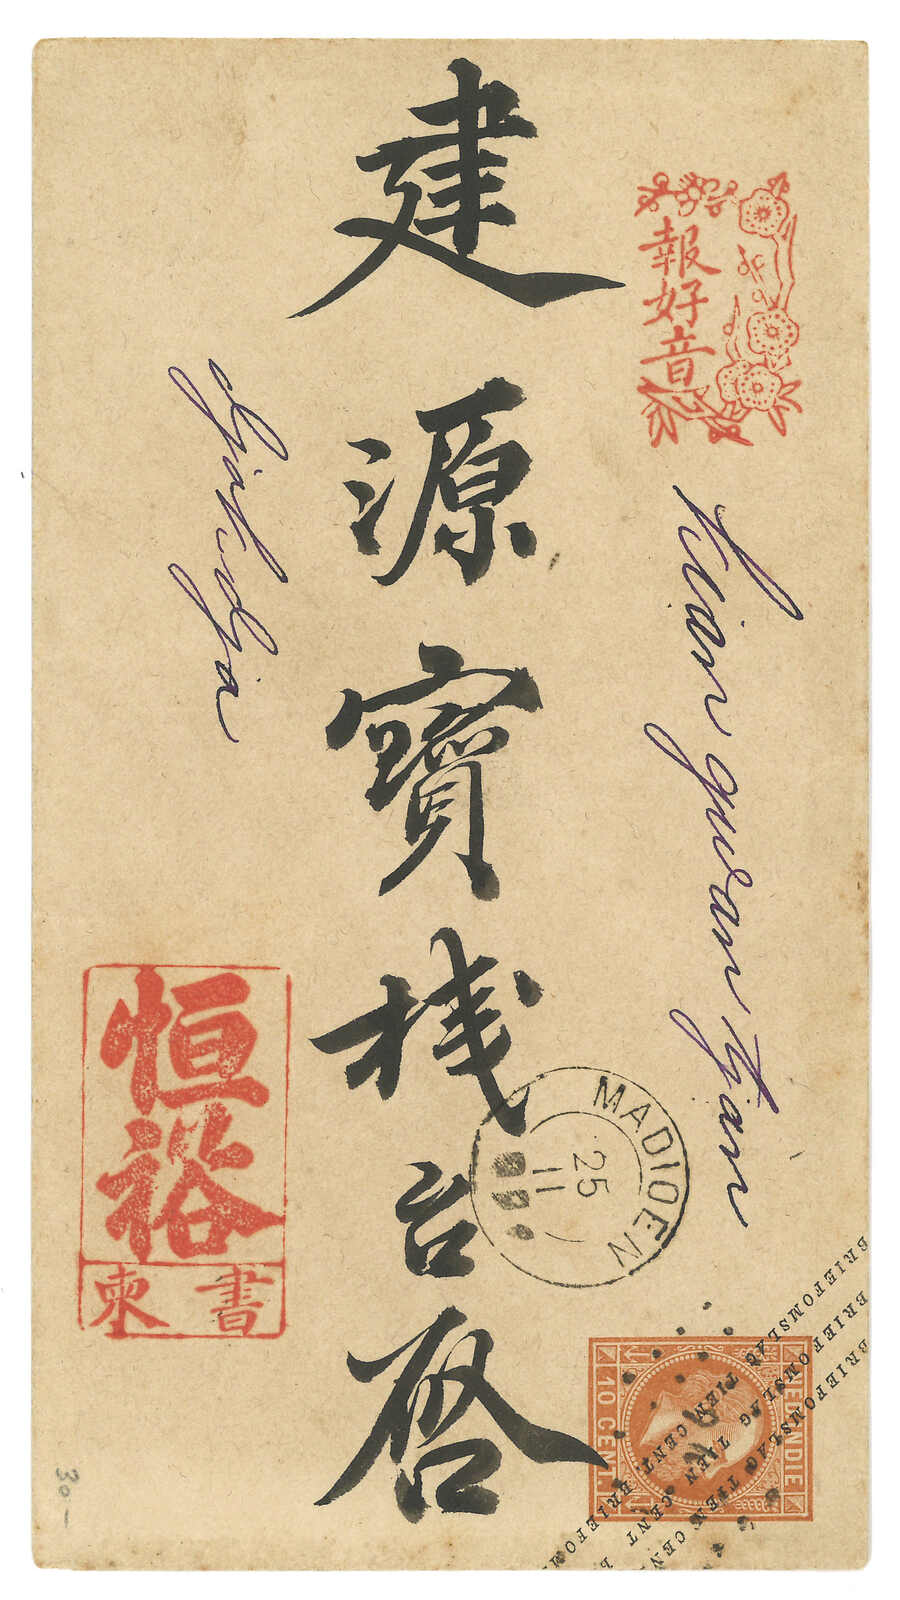 報好音
Kian gwan tjan
建源寶棧台啓
Djokdja
恒裕
書柬
MADIOEN
25
11
NED INDIE
10 CENT.
BRIEFOMSLAG TIEN CENT BRIEFOM
BRIEFOMSLAG TIEN CENT
BRIEFOMSLAG TIEN CENT
30-